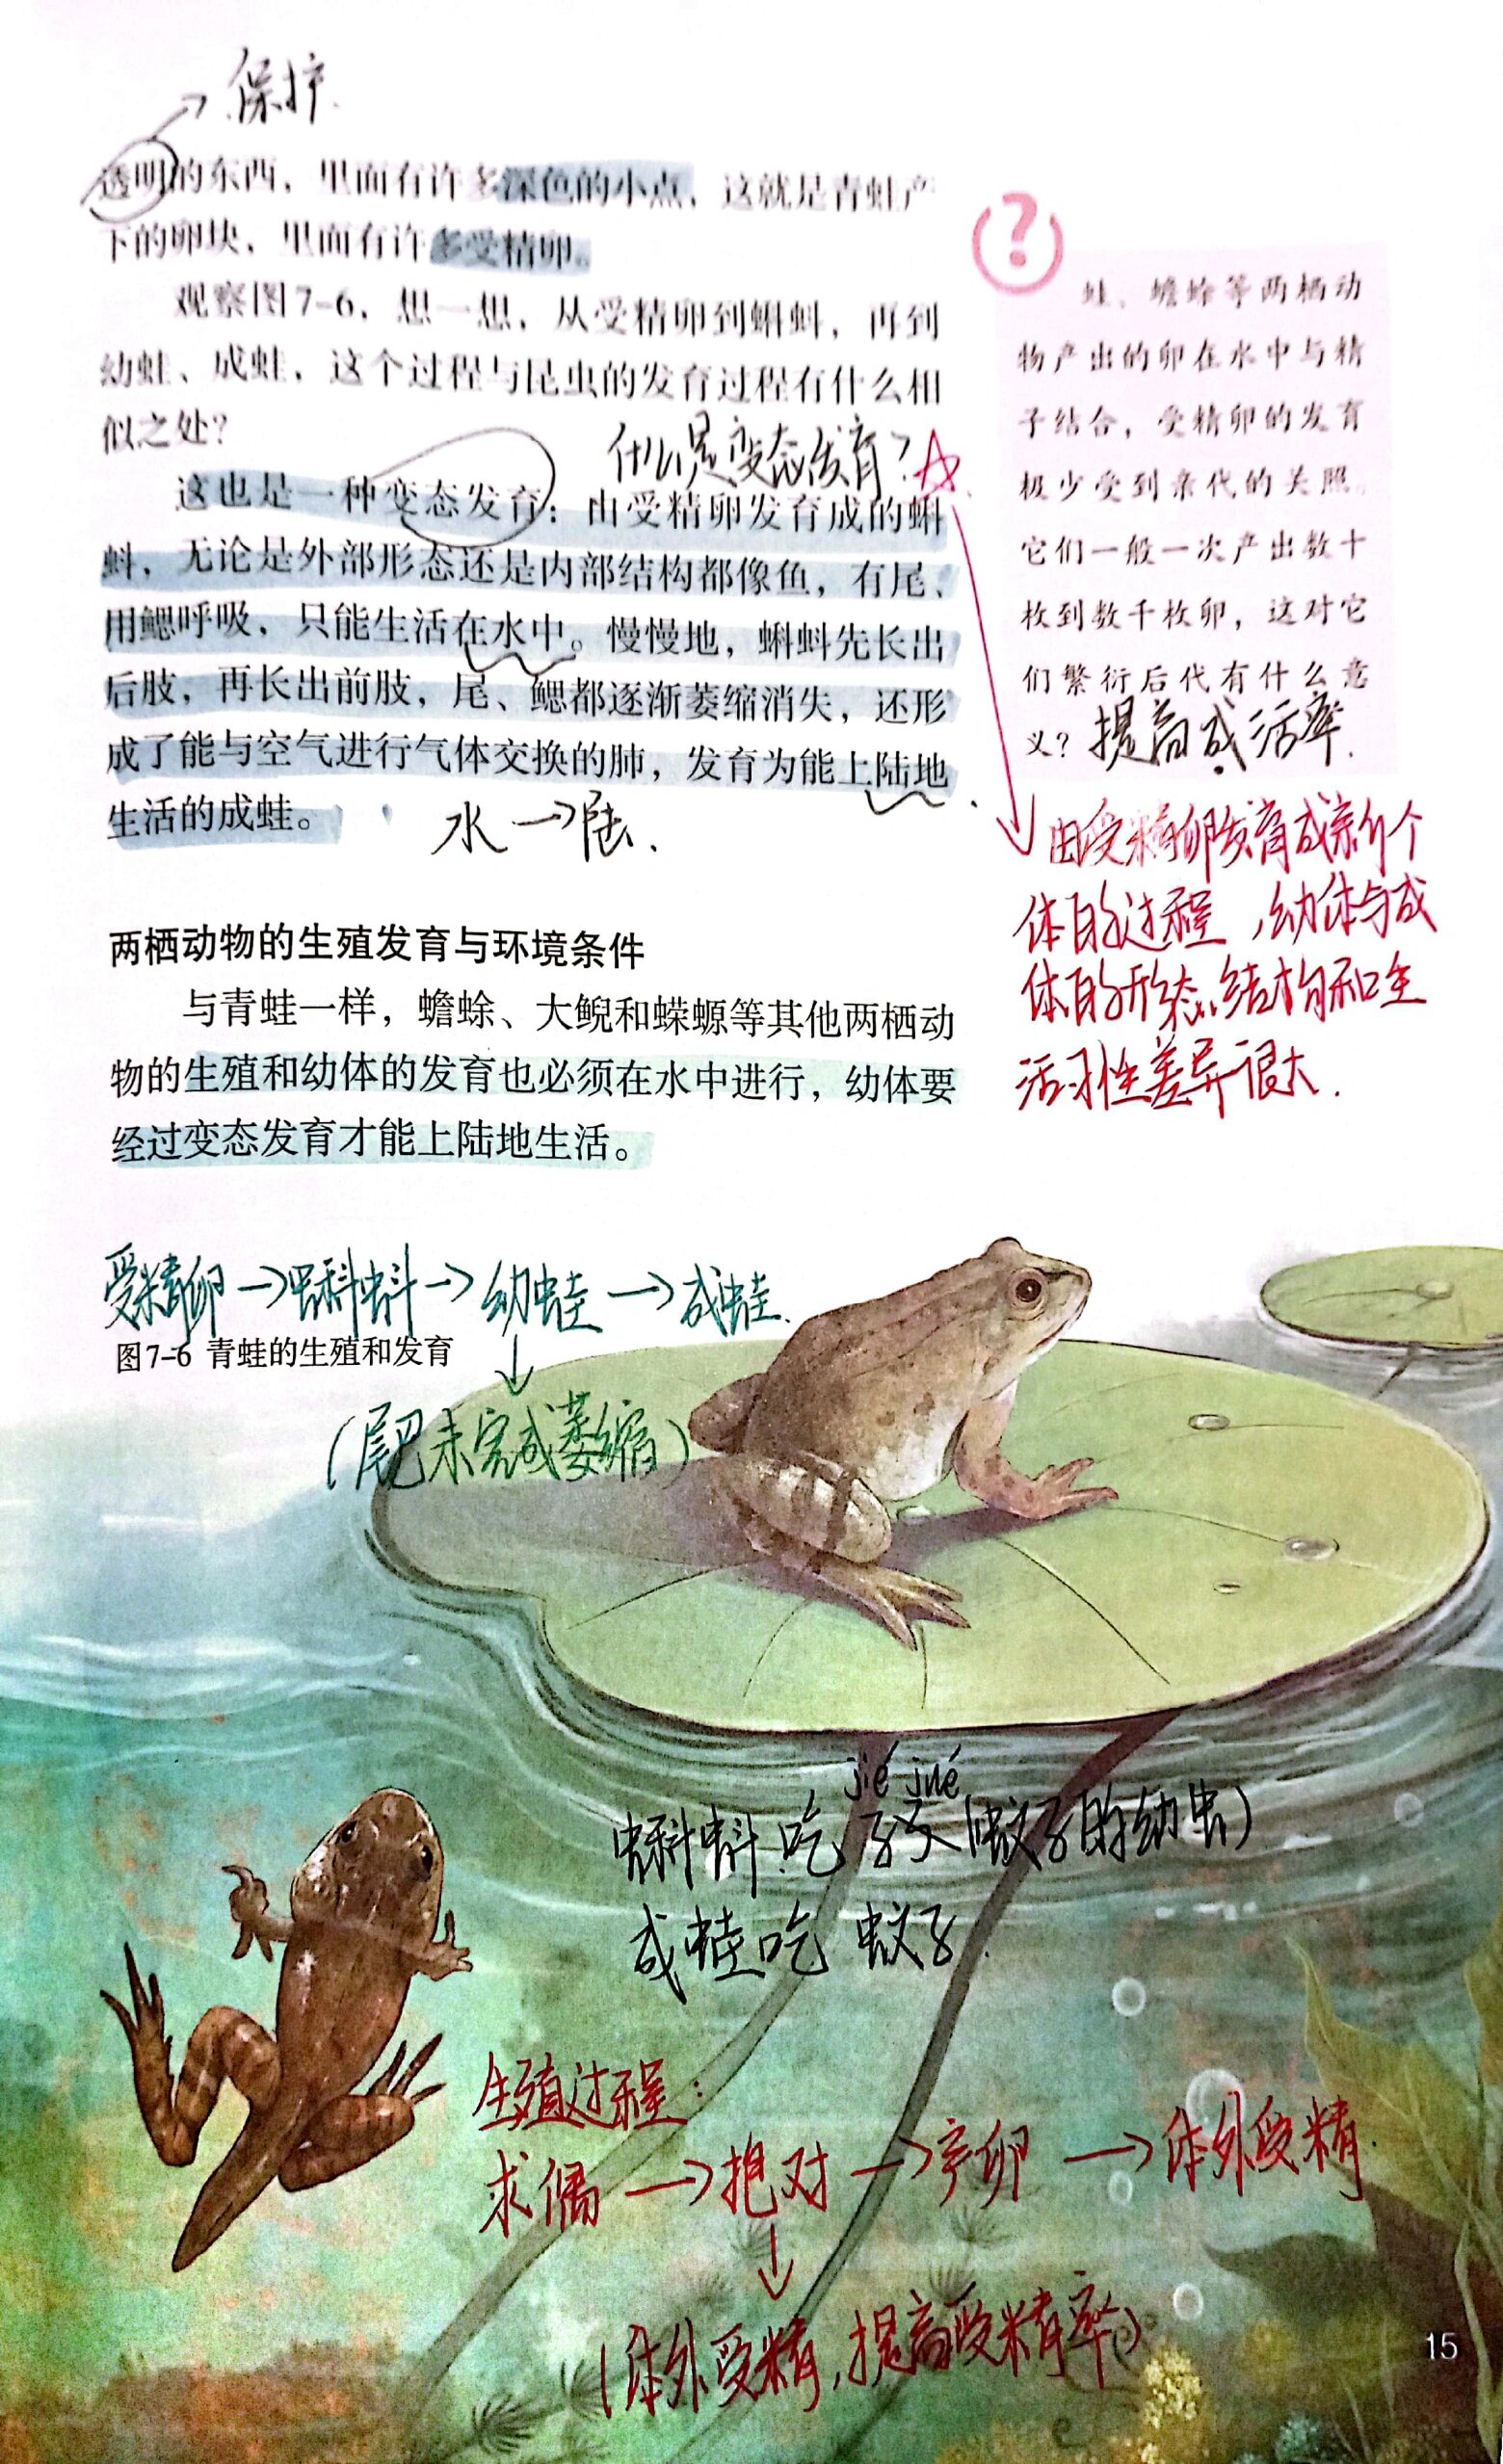 保护.
透明的东西，里面有许多深色的小点，这就是青蛙产
下的卵块，里面有许多受精卵。
观察图7-6，想一想，从受精卵到蝌蚪，再到
幼蛙、成蛙，这个过程与昆虫的发育过程有什么相
似之处？
什么是变态发育？
这也是一种变态发育：由受精卵发育成的蝌
蚪，无论是外部形态还是内部结构都像鱼，有尾、
用鳃呼吸，只能生活在水中。慢慢地，蝌蚪先长出
后肢，再长出前肢，尾、鳃都逐渐萎缩消失，还形
成了能与空气进行气体交换的肺，发育为能上陆地
生活的成蛙。
水→陆.
?
蛙、蟾蜍等两栖动
物产出的卵在水中与精
子结合，受精卵的发育
极少受到亲代的关照。
它们一般一次产出数十
枚到数千枚卵，这对它
们繁衍后代有什么意
义？提高成活率.
由受精卵发育成新个
体的过程,幼体与成
体的形态、结构和生
活习性差异很大.
两栖动物的生殖发育与环境条件
与青蛙一样，蟾蜍、大鲵和蝾螈等其他两栖动
物的生殖和幼体的发育也必须在水中进行，幼体要
经过变态发育才能上陆地生活。
受精卵→蝌蚪→幼蛙→成蛙.
图7-6 青蛙的生殖和发育
(尾巴未完成萎缩)
jié jué
蝌蚪吃孑孓(蚊子的幼虫)
成蛙吃蚊子.
生殖过程:
求偶→抱对→产卵→体外受精.
(体外受精,提高受精率)
15